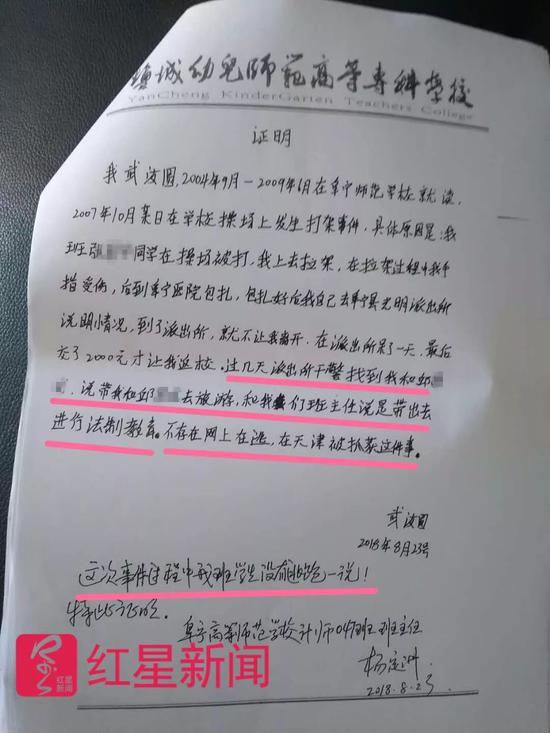 盐城幼儿师范高等专科学校
YanCheng KinderGarten Teachers College
证明
我武汝圆,2004年9月－2009年6月在阜宁师范学校就读,
2007年10月某日在学校操场上发生打架事件,具体原因是:我
班张 同学在操场被打,我上去拉架,在拉架过程中我手
指受伤,后到阜宁医院包扎,包扎好后我自己去阜宁县光明派出所
说明情况,到了派出所,就不让我离开.在派出所呆了一天,最后
交了2000元才让我返校.过几天派出所干警找到我和邱
,说带我和邱 去旅游,和我们班主任说是带出去
进行法制教育。不存在网上在逃,在天津被抓获这件事。
武汝圆
2018年8月23号
这次事件过程中我班学生没有出逃一说!
特此证明.
阜宁高等师范学校 师04 班班主任
杨
2018.8.23
红星新闻
红星新闻